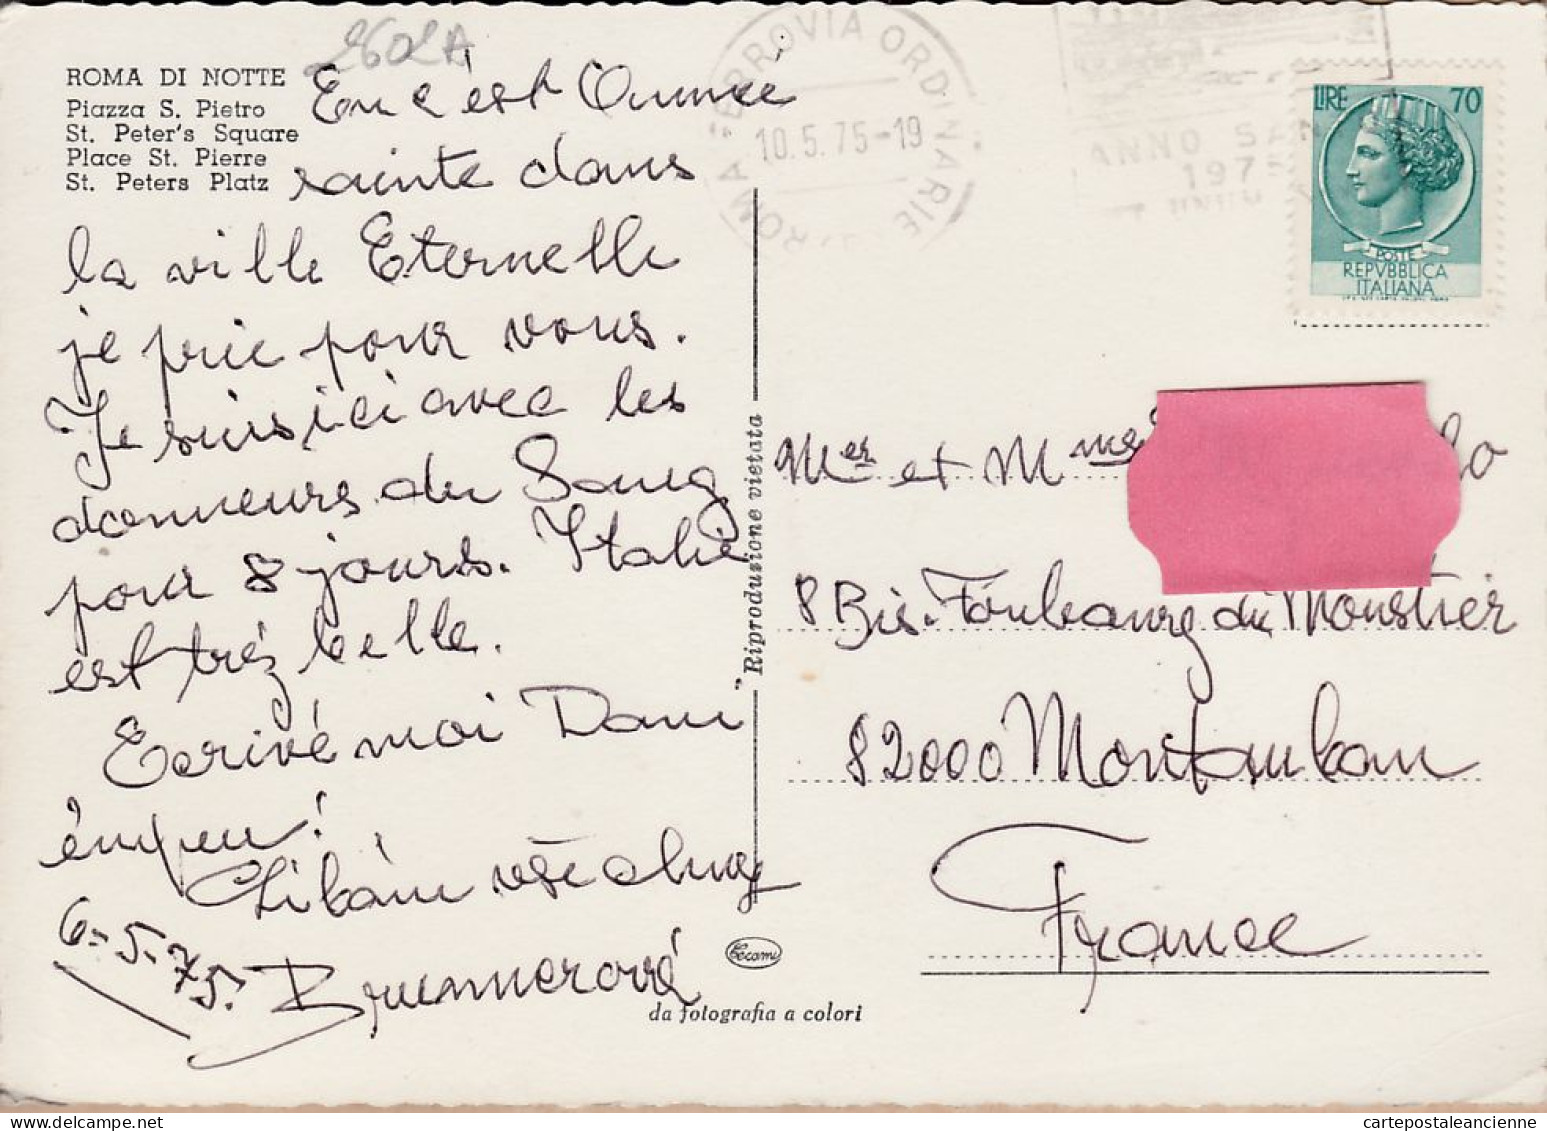 ROMA DI NOTTE
Piazza S. Pietro
St. Peter's Square
Place St. Pierre
St. Peters Platz
En c'est l'Année
sainte dans
la ville Eternelle
je prie pour vous.
Je suis ici avec les
donneurs du Sang
pour 8 jours. Italie
est très belle.
Ecrivé moi Dani
ênpeu!
Libám vše
Brunnerová
6.-5.-75.
ROMA FERROVIA ORDINARIE
10.5.75-19
ANNO SAN
1975
LIRE 70
POSTE
REPVBBLICA
ITALIANA
Mer et M mes
8 Bis. Foubourg du Moustier
82000 Montauban
France
Riproduzione vietata
Cecami
da fotografia a colori
cartepostaleancienne